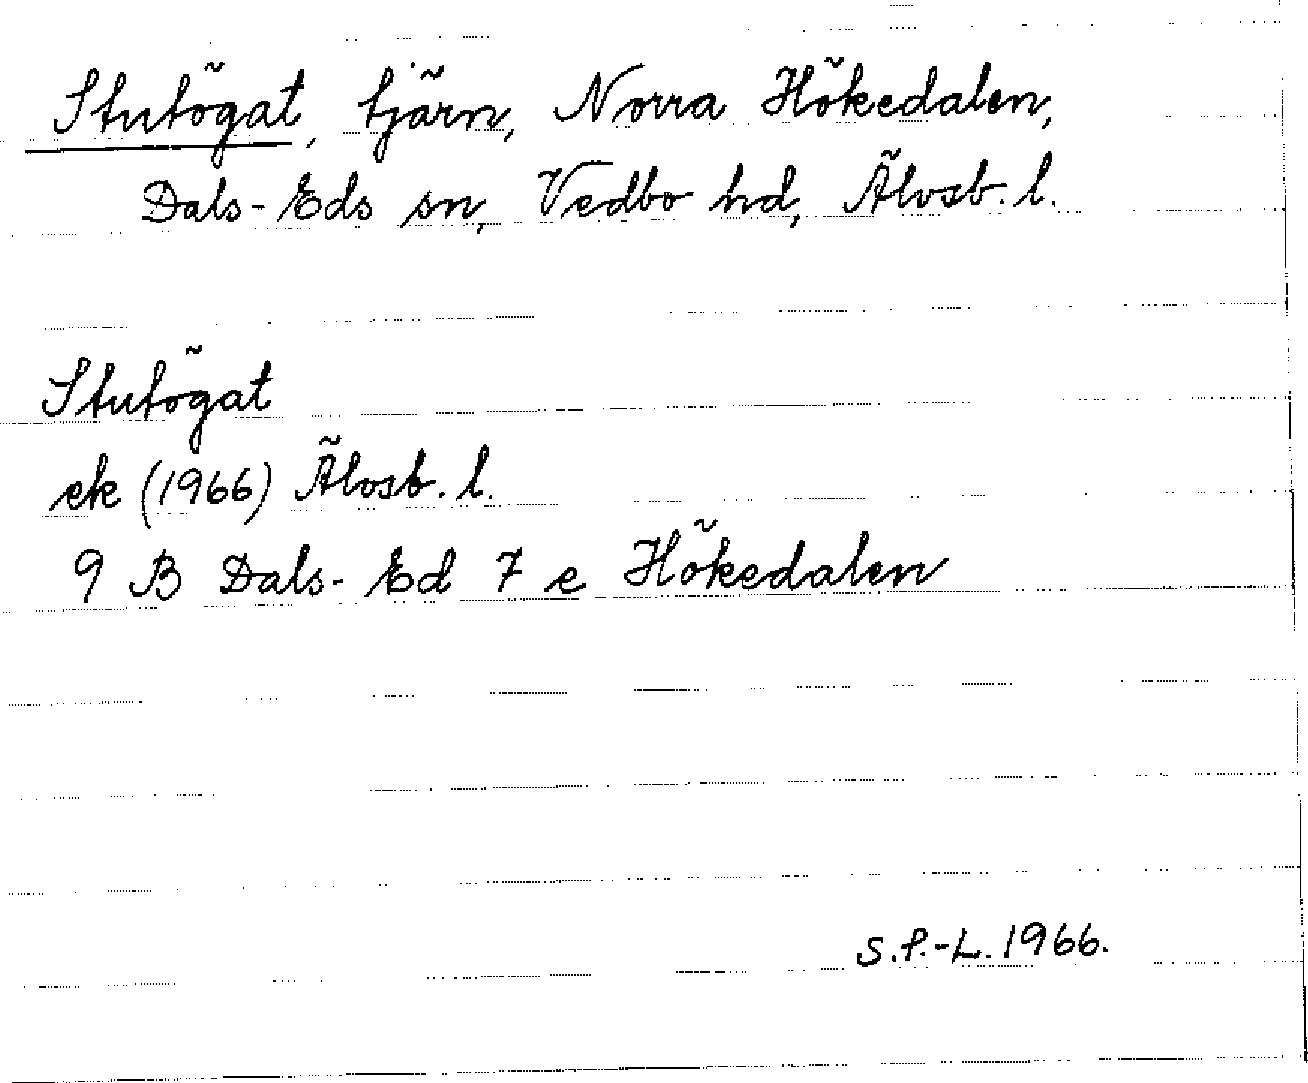 Stutögat, tjärn, Norra Hökedalen,
Dals-Eds sn, Vedbo hd, Älvsb. l.
Stutögat
ek (1966) Älvsb. l.
9 B Dals-Ed 7 e Hökedalen
S.P.-L. 1966.